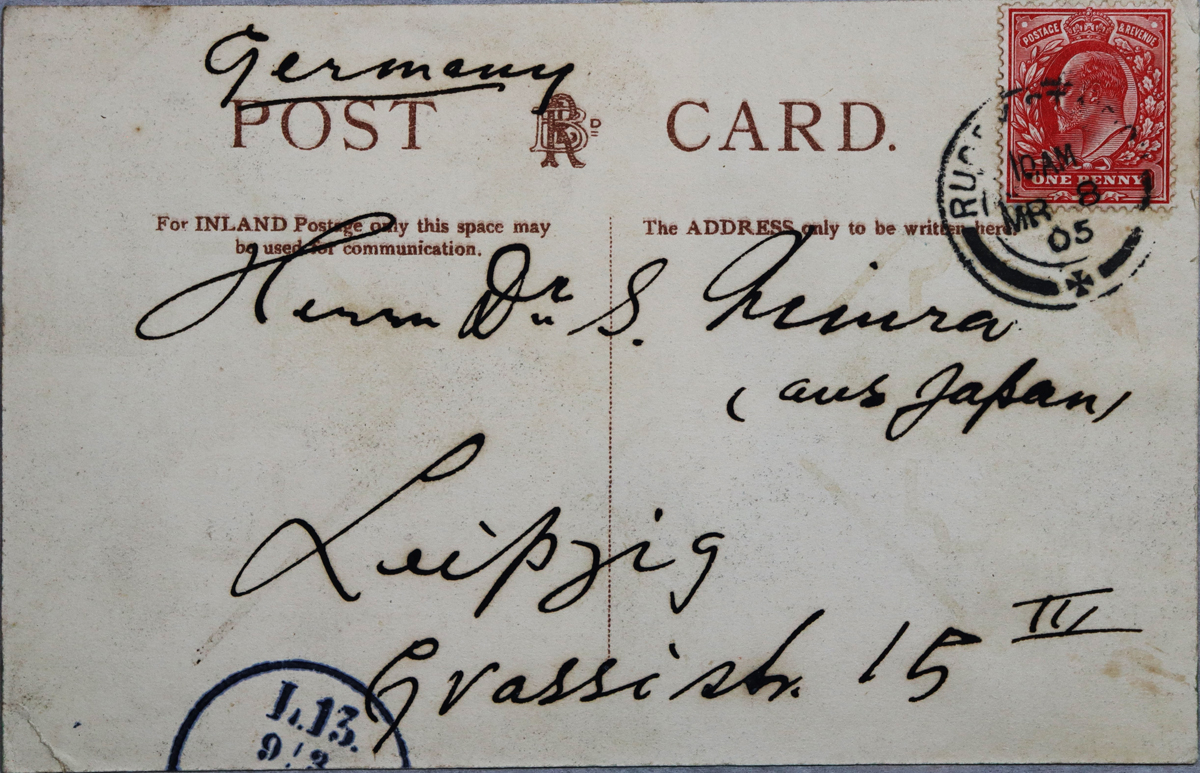 Germany
POST CARD.
POSTAGE & REVENUE
ONE PENNY
10 AM
MR 8
05
For INLAND Postage only this space may
be used for communication.
The ADDRESS only to be written here.
Herrn Dr. S.
(aus Japan)
Leipzig
Grassistr. 15 III
L.13.